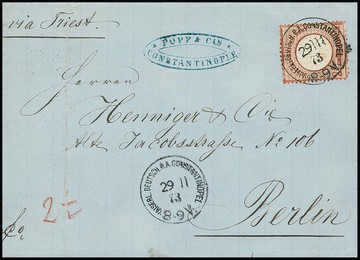 via Triest.
POPP & Cie
CONSTANTINOPLE
KAISERL. DEUTSCH. P.A. CONSTANTINOPEL
29 11
73
8-9 V.
Herren
Henniger & Cie
Alte Jacobsstraße No 106
KAISERL. DEUTSCH. P.A. CONSTANTINOPEL
29 11
73
8-9 V.
Berlin
2